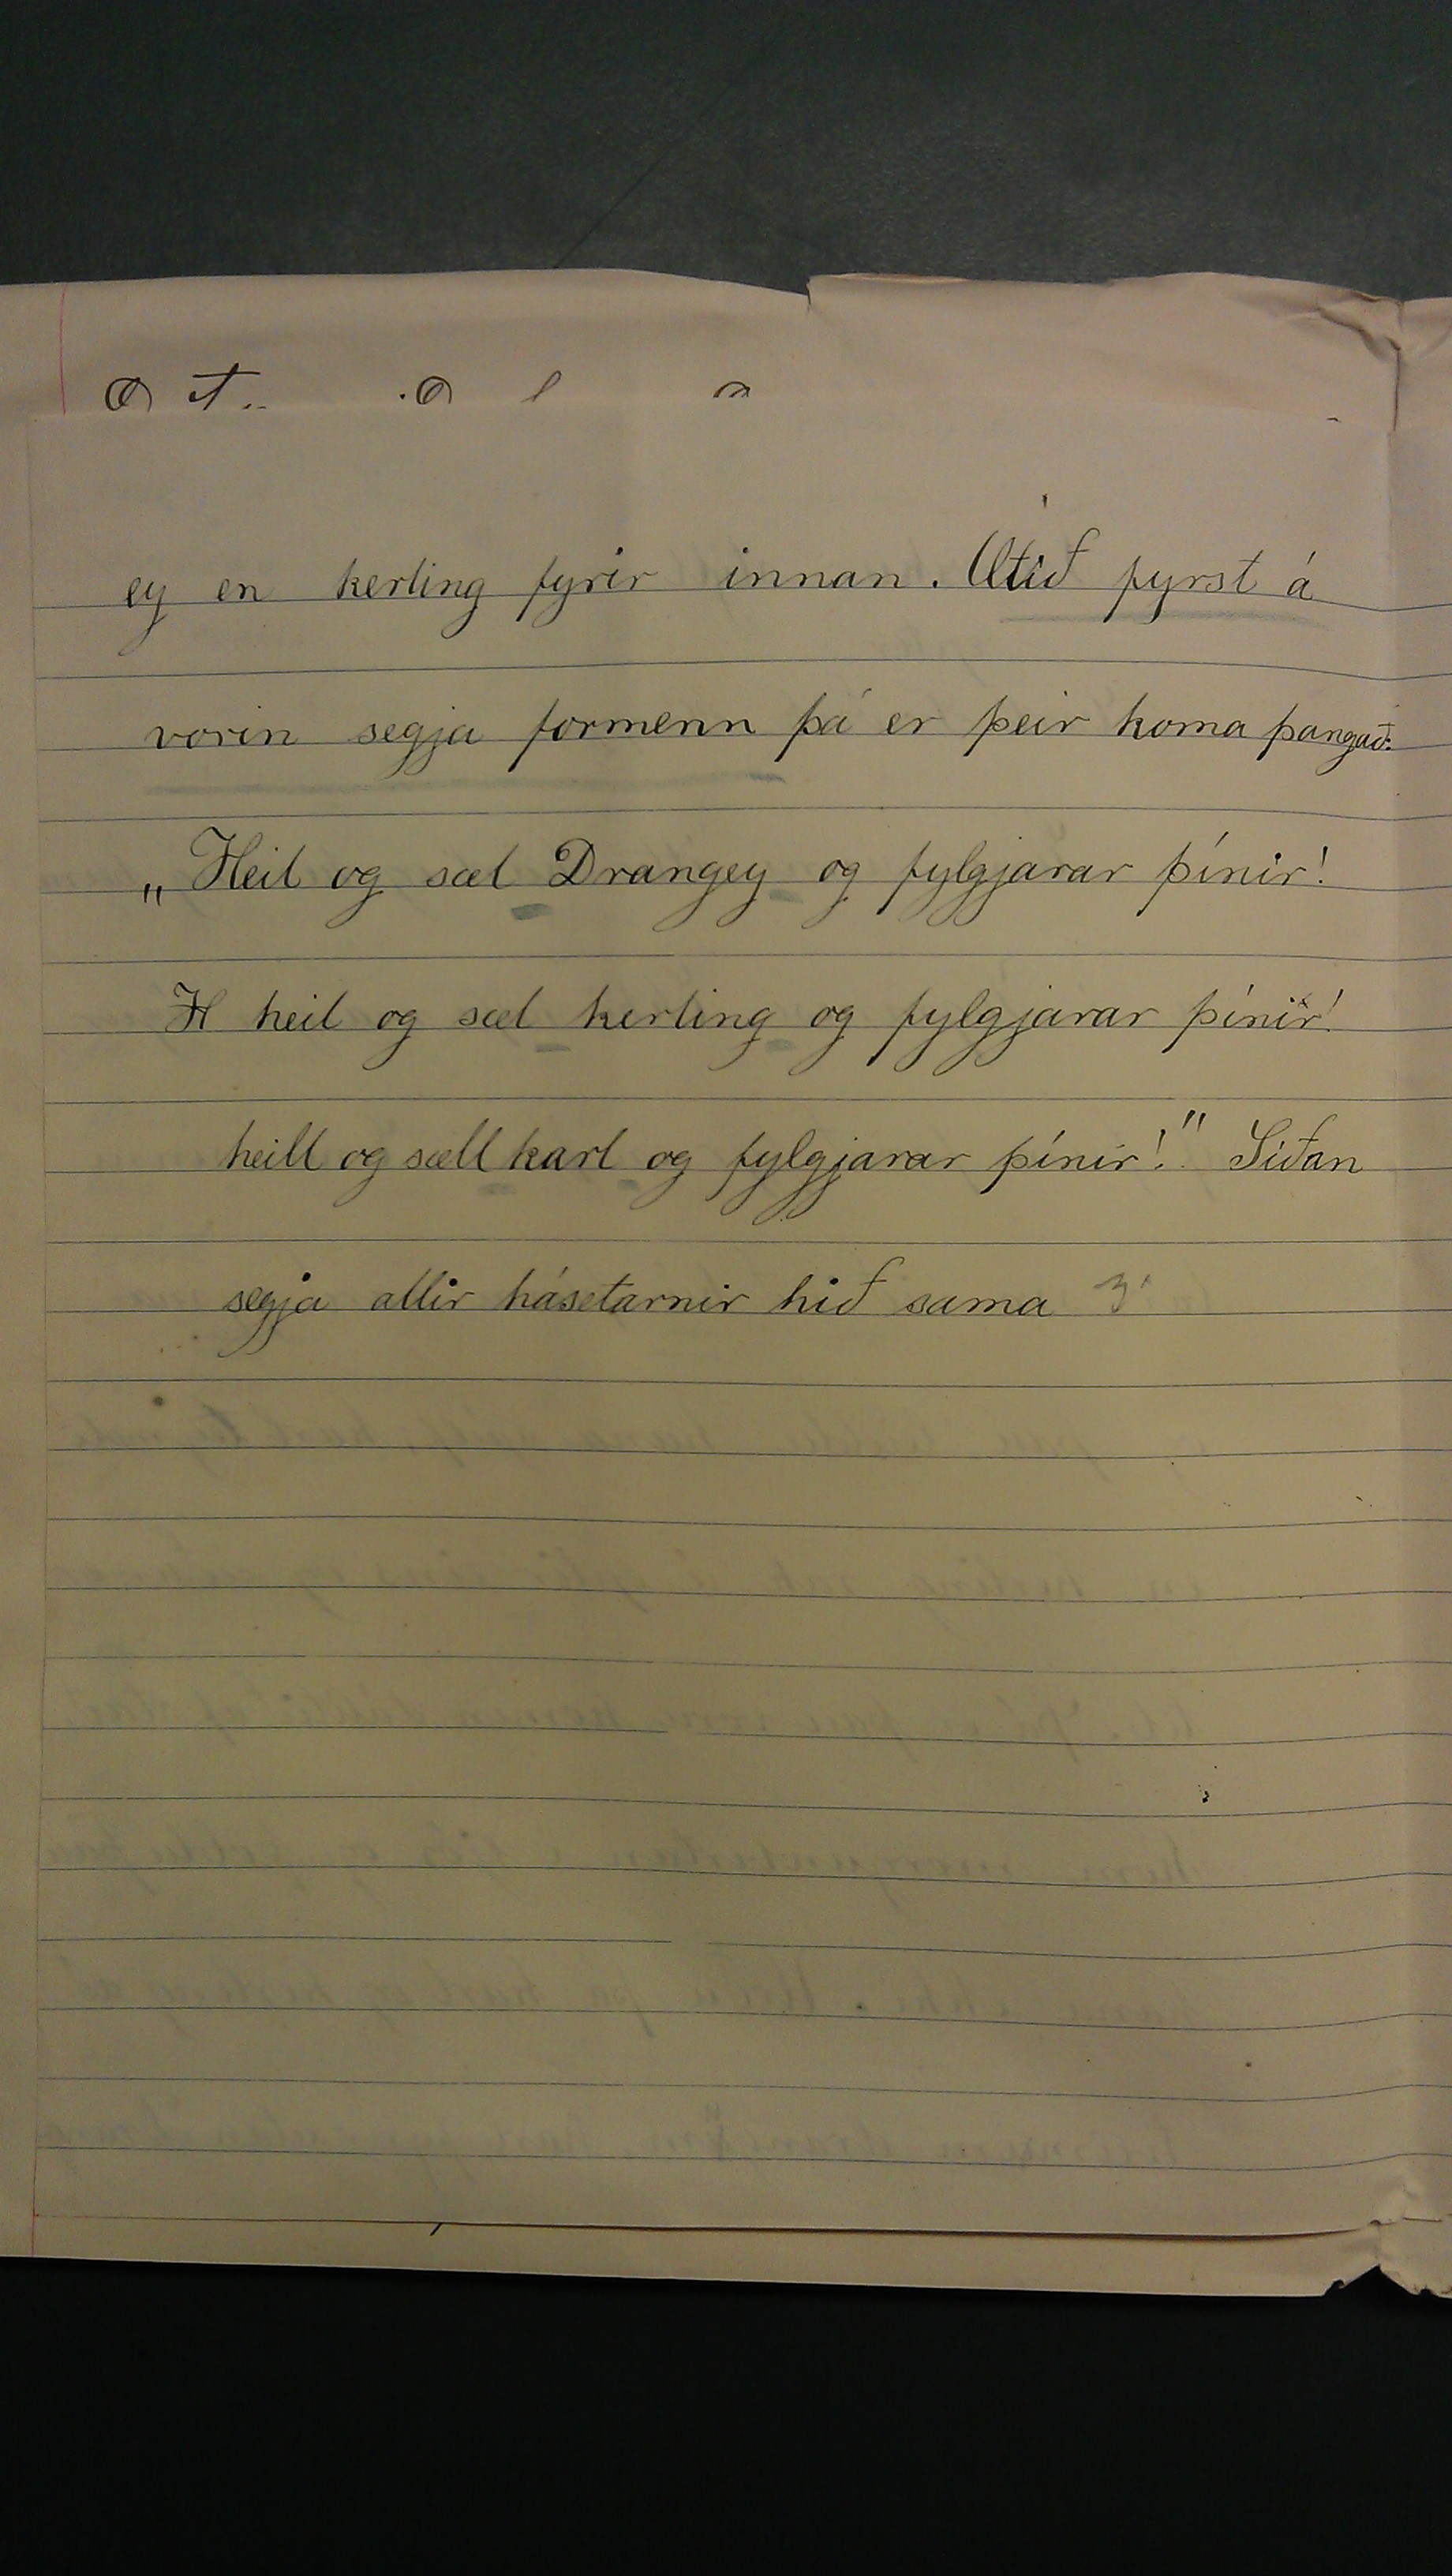 ey en kerling fyrir innan. Ætið fyrst á
vorin segja formenn þá er þeir koma þangað:
„Heil og sæl Drangey og fylgjarar þínir!
H heil og sæl kerling og fylgjarar þínir!
heill og sæll karl og fylgjarar þínir!" Síðan
segja allir hásetarnir hið sama